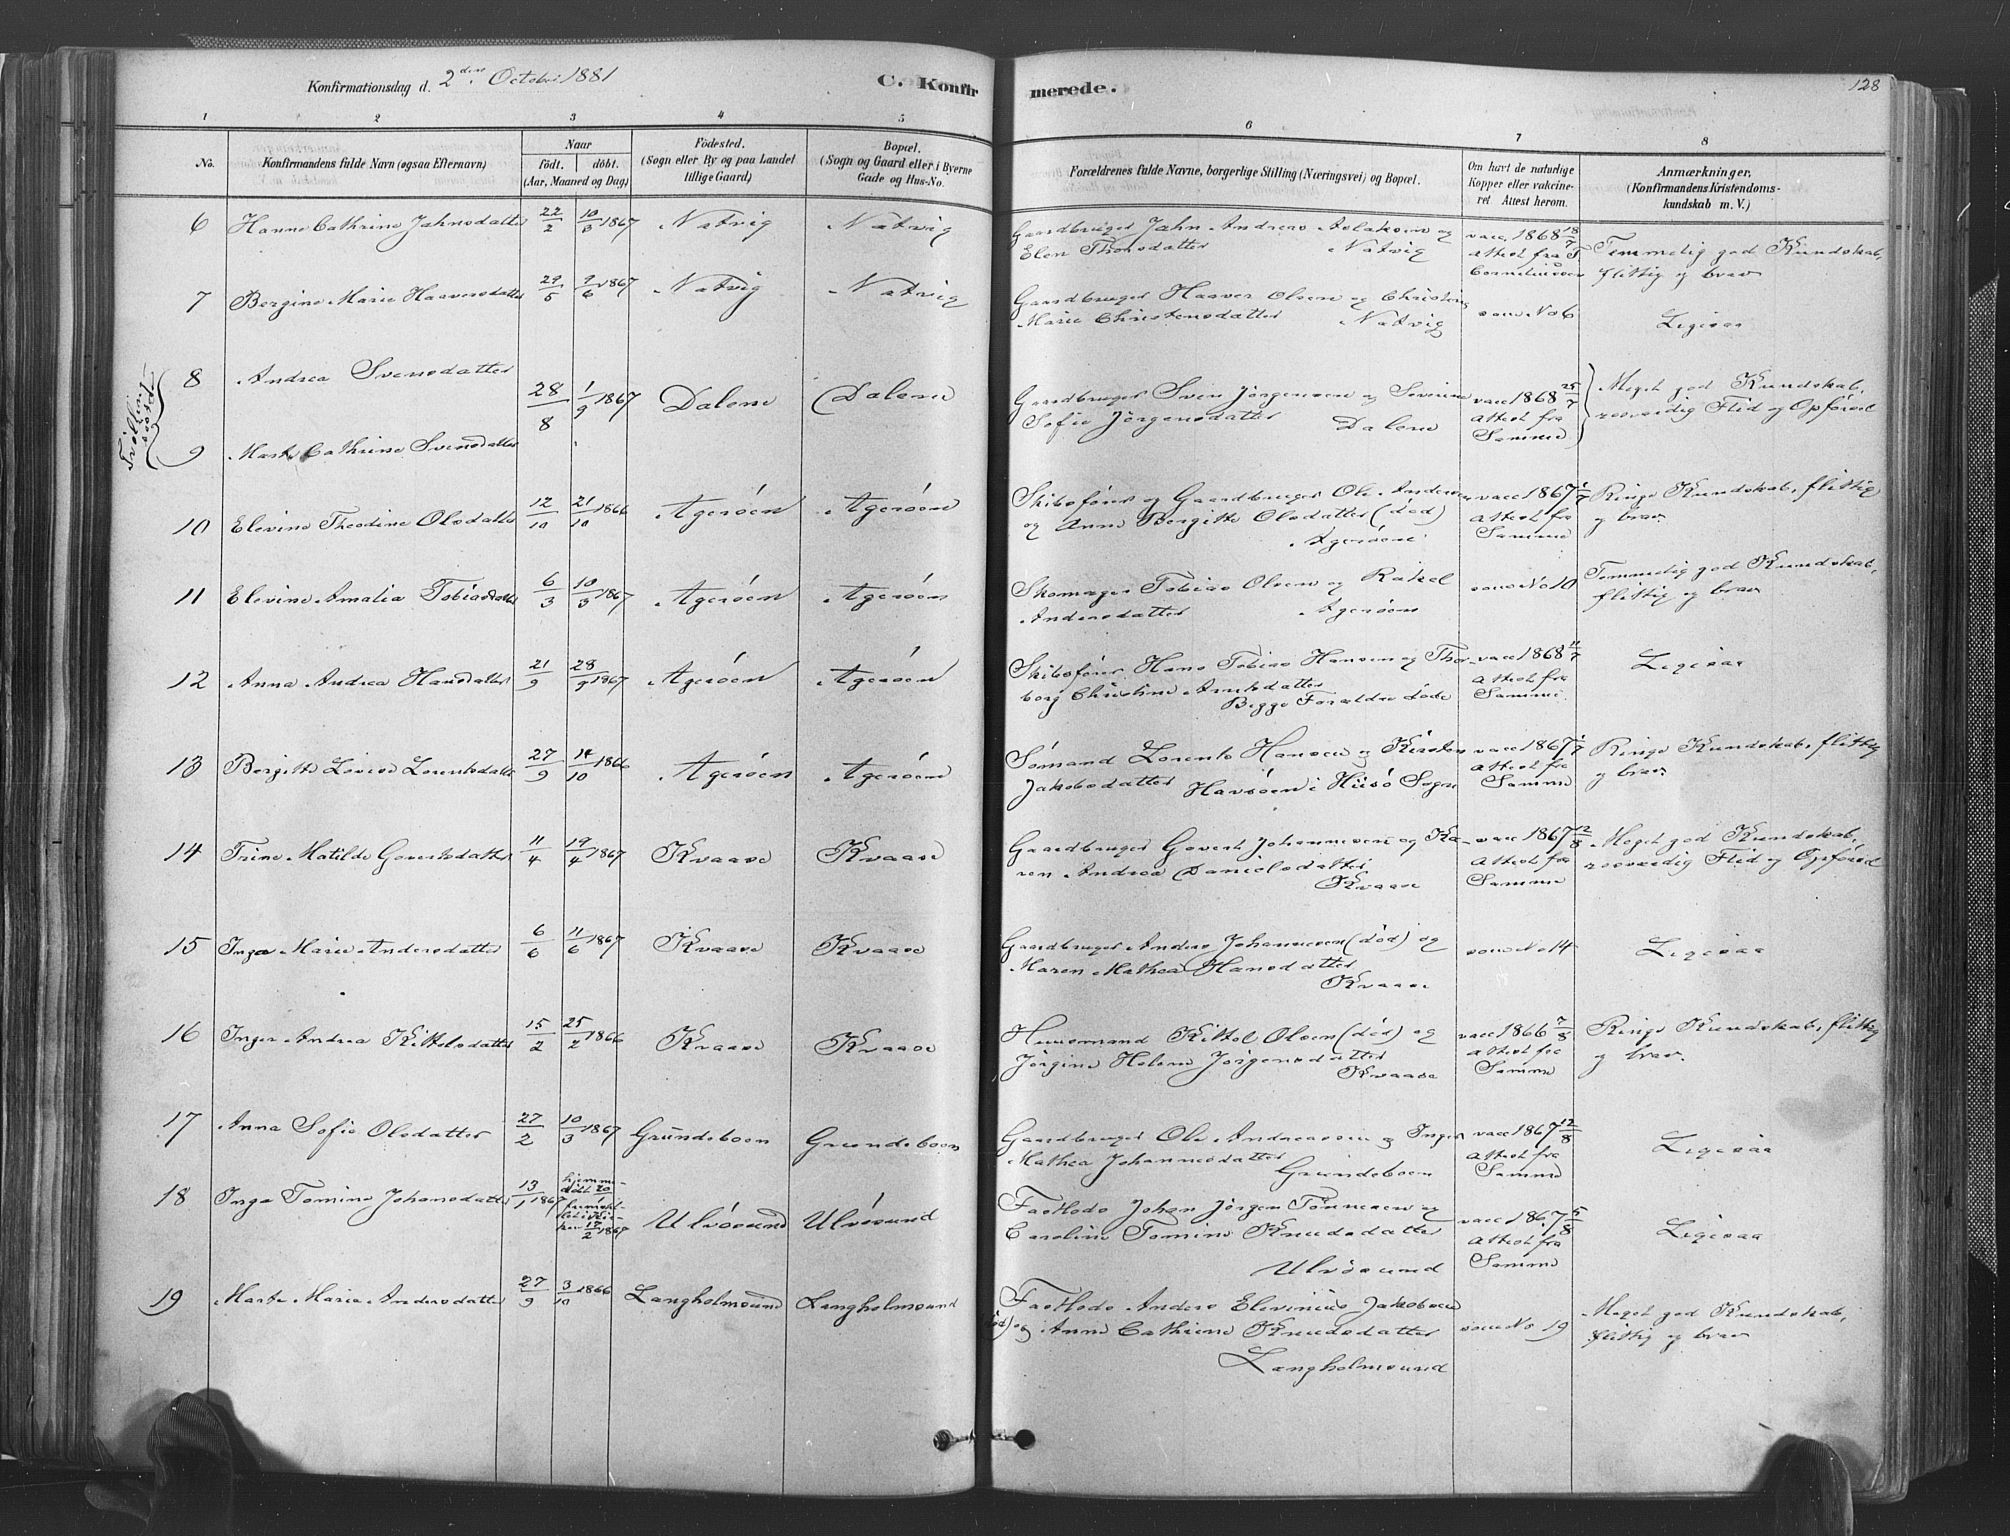 Konfirmationsdag d. 2den Octobr 1881
C. Konfirmerede.
128
1 2 3 4 5 6 7 8
No.
Konfirmandens fulde Navn (ogsaa Efternavn)
Naar
födt. döbt.
(Aar, Maaned og Dag)
Födested.
(Sogn eller By og paa Landet
tillige Gaard)
Bopæl.
(Sogn og Gaard eller i Byerne
Gade og Hus-No.
Forældrenes fulde Navne, borgerlige Stilling (Næringsvei) og Bopæl.
Om havt de naturlige
Kopper eller vakcine-
ret Attest herom.
Anmærkninger,
(Konfirmandens Kristendoms-
kundskab m. V.)
6 Hanne Cathrine Jahnsdatter 22/2 10/3 1867 Natvig Natvig
Gaardbruger Jahn Andreas Aslaksen og
Elen Thorsdatter Natvig
vacc. 1868 18/7
attest fra T
Corneliussen
Temmelig god Kundskab,
flittig og brav
7 Bergine Marie Haaversdatter 29/5 9/6 1867 Natvig Natvig
Gaardbruger Haaver Olsen og Christine
Marie Christensdatter Natvig
som No 6
Ligesaa
Tvillingsøstre
8 Andrea Svensdatter
28/8 1/9 1867 Dalene Dalene
9 Marte Cathrine Svensdatter
Gaardbruger Sven Jörgensen og Severine
Sofie Jörgensdatter Dalene
vacc 1868 25/7
attest fra
Samme
Meget god Kundskab,
rosværdig Flid og Opförsel
10 Elevine Theodine Olsdatter 12/10 21/10 1866 Ageröen Ageröen
Skibsförer og Gaardbruger Ole Andersen
og Anne Bergitte Olsdatter (död)
Ageröen
vacc 1867 1/7
attest fra
Samme
Ringe Kundskab, flittig
og brav.
11 Elevine Amalia Tobiasdatter 6/3 10/3 1867 Ageröen Ageröen
Skomager Tobias Olsen og Rakel
Andersdatter Ageröen
som No 10
Temmelig god Kundskab,
flittig og brav
12 Anna Andrea Hansdatter 21/9 28/9 1867 Ageröen Ageröen
Skibsförer Hans Tobias Hansen og Thor-
borg Christine Arntsdatter
Begge Forældre döde
vacc 1868 11/7
attest fra
Samme
Ligesaa
13 Bergitte Lovise Lorentsdatter 27/9 14/10 1866 Ageröen Ageröen
Sömand Lorents Hansen og Kirsten
Jakobsdatter Havsöen i Hisö Sogn
vacc 1867 1/7
attest fra
Samme
Ringe Kundskab, flittig
og brav.
14 Trine Matilde Govertsdatter 11/4 19/4 1867 Kvaase Kvaase
Gaardbruger Govert Johannesen og Ka-
ren Andrea Danielsdatter
Kvaase
vacc 1867 12/8
attest fra
Samme
Meget god Kundskab,
rosværdig Flid og Opförsel
15 Inga Marie Andersdatter 6/6 11/6 1867 Kvaase Kvaase
Gaardbruger Anders Johannesen (död) og
Maren Mathea Hansdatter
Kvaase
som No 14
Ligesaa
16 Inger Andrea Kittelsdatter 15/2 25/2 1866 Kvaase Kvaase
Huusmand Kittel Olsen (död) og
Jörgine Helene Jörgensdatter
Kvaase
vacc 1866 7/8
attest fra
Samme
Ringe Kundskab, flittig
og brav.
17 Anna Sofie Olsdatter 27/2 10/3 1867 Grundeboen Grundeboen
Gaardbruger Ole Andreassen og Inger
Mathea Johannesdatter
Grundeboen
vacc 1867 12/8
attest fra
Samme
Ligesaa
18 Inga Tomine Johansdatter 13/1 1867 hjemme-
döbt 20/1
fremstil-
let i Kir-
ken 17/2 1867 Ulvösund Ulvösund
Fastlods Johan Jörgen Tönnesen og
Caroline Tomine Knudsdatter
Ulvösund
vacc 1867 5/8
attest fra
Samme
Ligesaa
19 Marte Maria Andersdatter 27/9 3/10 1866 Langholmsund Langholmsund
Fastlods Anders Elevinius Jakobsen
(död) og Anne Cathrine Knudsdatter
Langholmsund
som No 19
Meget god Kundskab,
flittig og brav